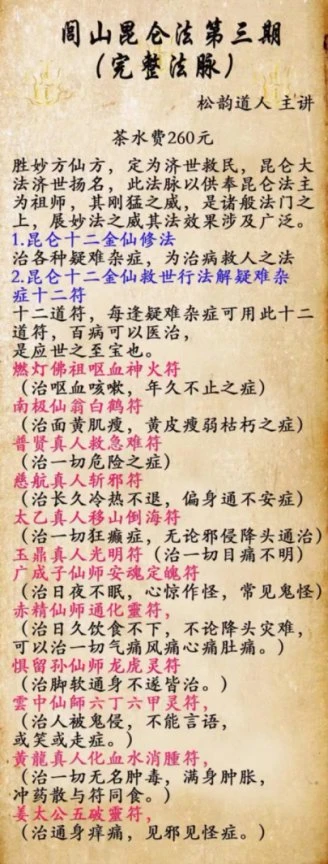 闾山昆仑法第三期
（完整法脉）
松韵道人 主讲
茶水费260元
胜妙方仙方，定为济世救民，昆仑大
法济世扬名，此法脉以供奉昆仑法主
为祖师，其刚猛之威，是诸般法门之
上，展妙法之威其法效果涉及广泛。
1.昆仑十二金仙修法
治各种疑难杂症，为治病救人之法
2.昆仑十二金仙救世行法解疑难杂
症十二符
十二道符，每逢疑难杂症可用此十二
道符，百病可以医治，
是应世之至宝也。
燃灯佛祖呕血神火符
（治呕血咳嗽，年久不止之症）
南极仙翁白鹤符
（治面黄肌瘦，黄皮瘦弱枯朽之症）
普贤真人救急难符
（治一切危险之症）
慈航真人斩邪符
（治长久冷热不退，偏身通不安症）
太乙真人移山倒海符
（治一切狂癫症，无论邪侵降头通治）
玉鼎真人光明符（治一切目痛不明）
广成子仙师安魂定魄符
（治日夜不眠，心惊作怪，常见鬼怪）
赤精仙师通化靈符，
（治日久饮食不下，不论降头灾难，
可以治一切气痛风痛心痛肚痛。）
惧留孙仙师龙虎灵符
（治脚软通身不遂皆治。）
雲中仙師六丁六甲灵符，
（治人被鬼侵，不能言语，
或笑或走症。）
黃龍真人化血水消腫符，
（治一切无名肿毒，满身肿胀，
冲药散与符同食。）
姜太公五破靈符，
（治通身痒痛，见邪见怪症。）